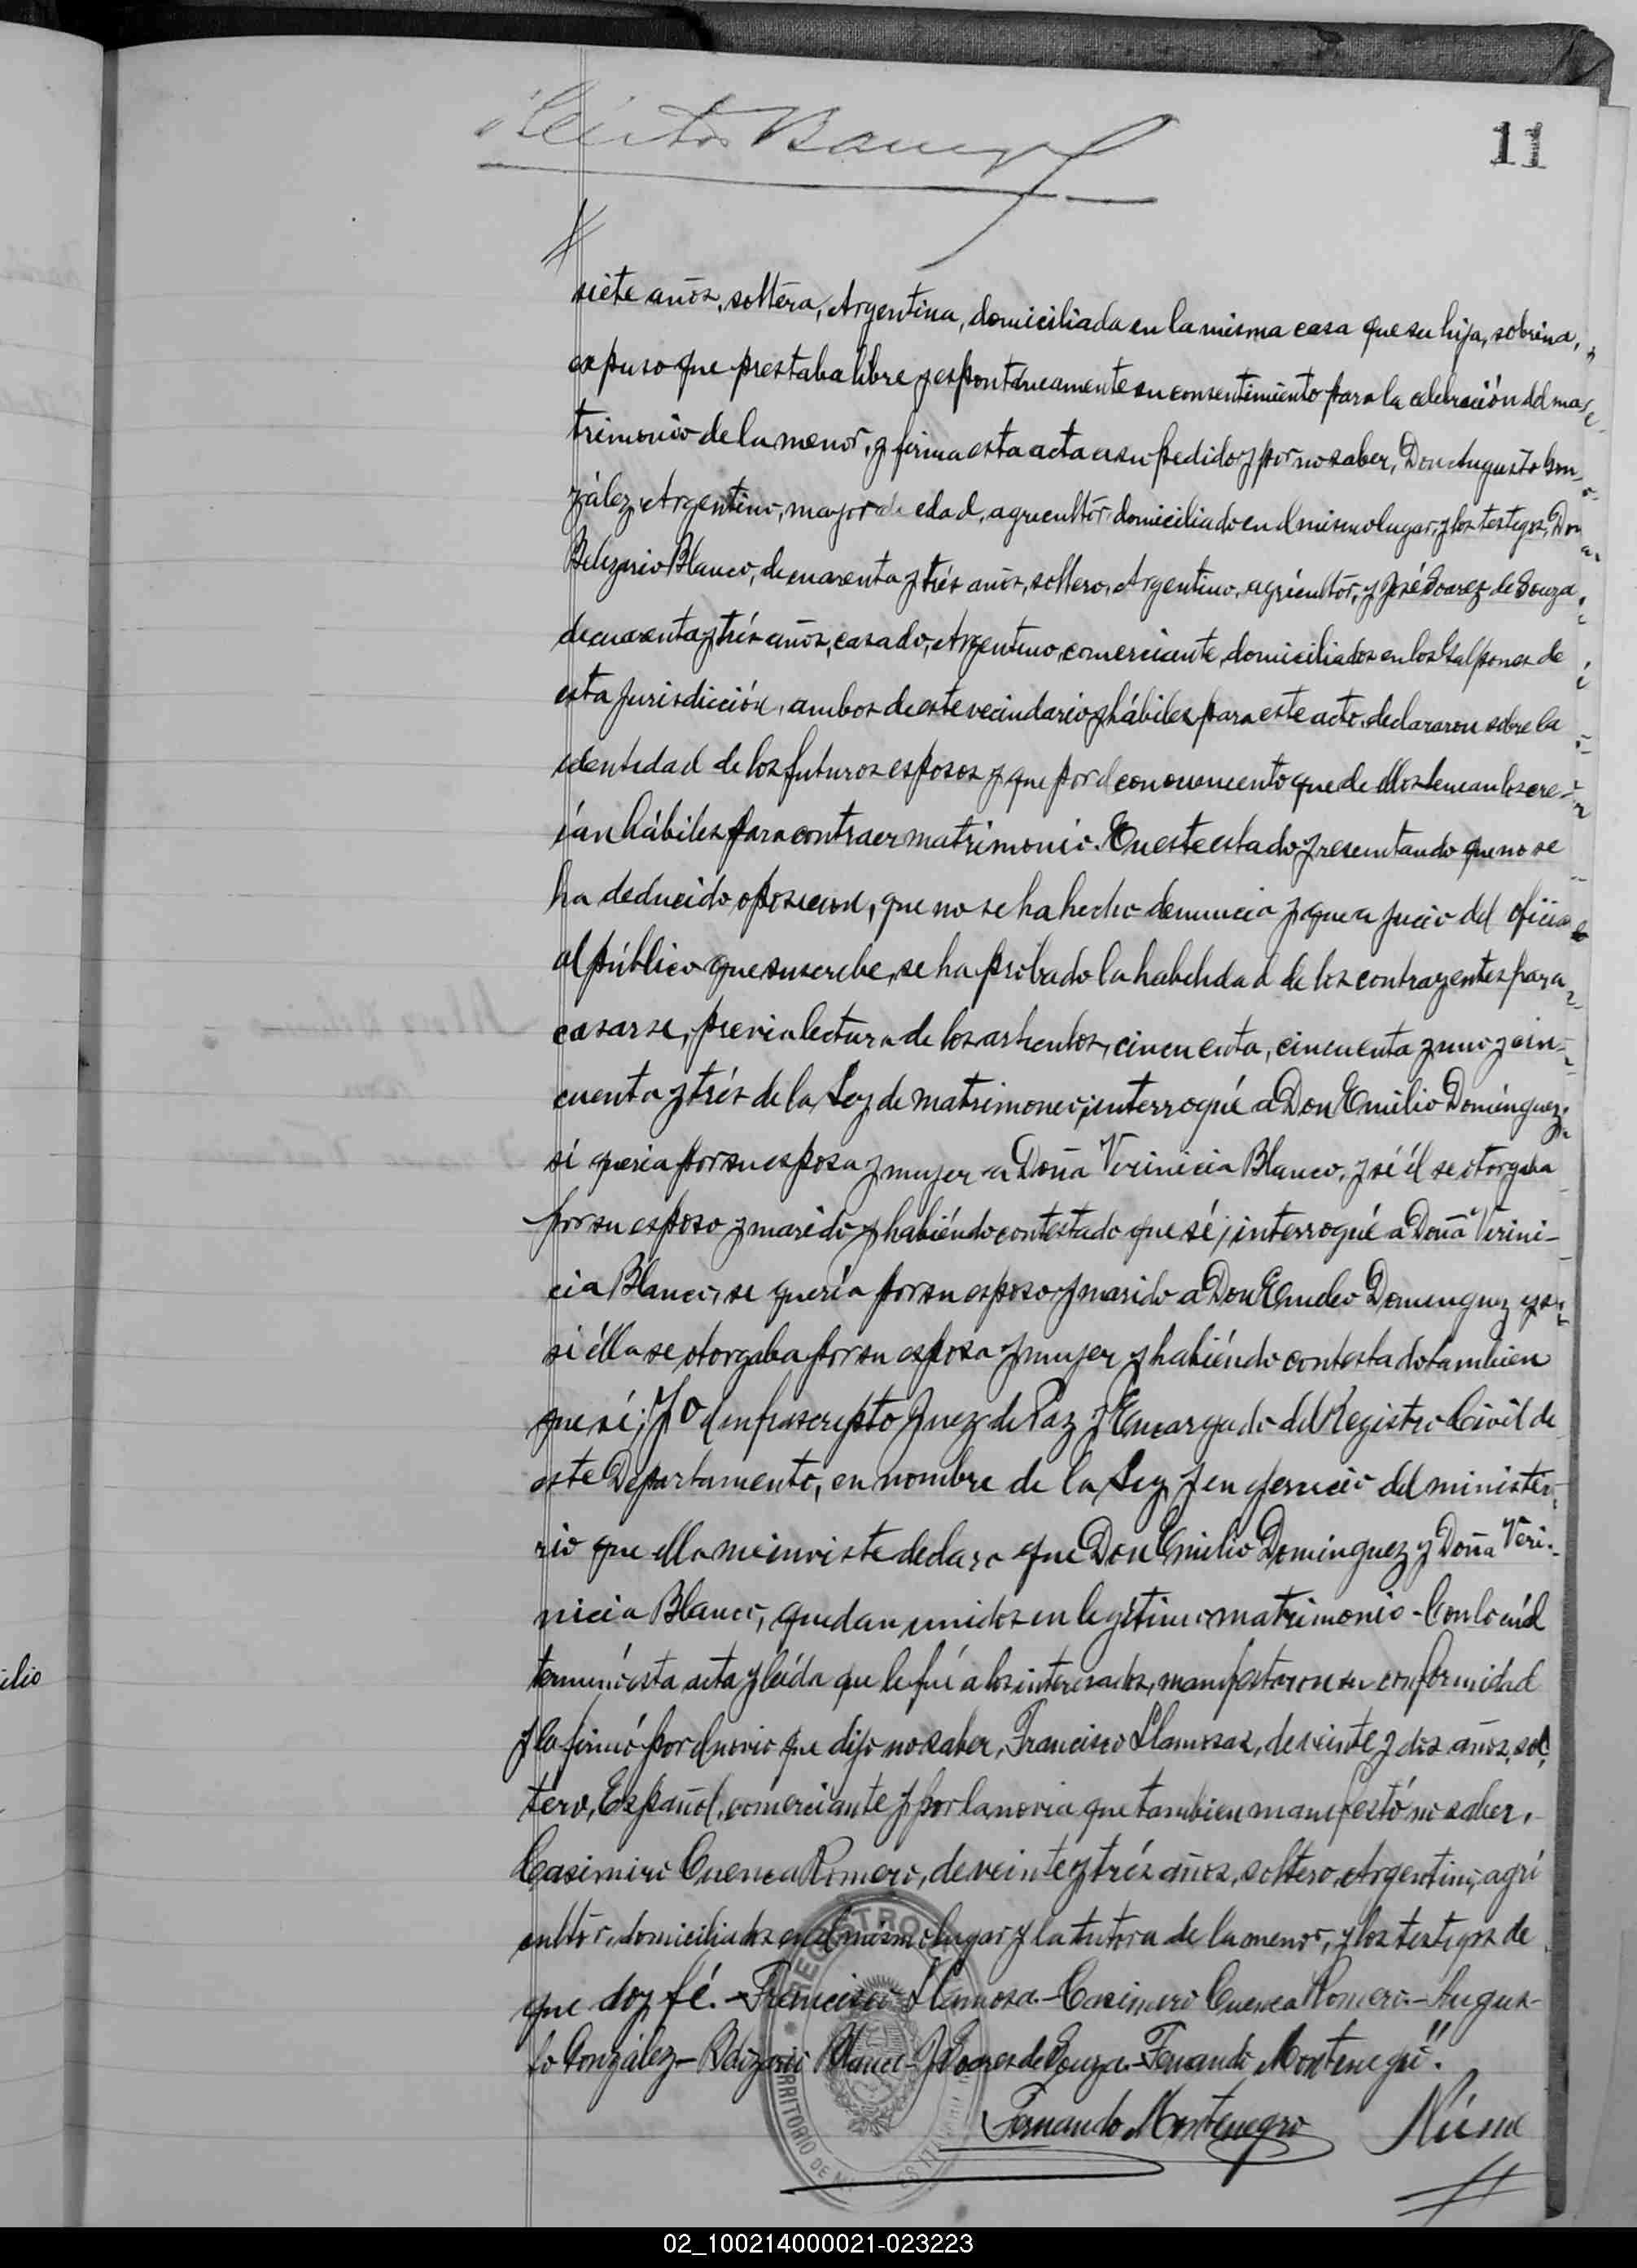 11
siete años, soltera, Argentina, domiciliada en la misma casa que su hija, sobrina,
expuso que prestaba libre y espontáneamente su consentimiento para la celebración del ma
trimonio de la menor, y firma esta acta a su pedido y por no saber, Don Augusto Gon
zález, Argentino, mayor de edad, agricultor, domiciliado en el mismo lugar, y los testigos, Don
Belizario Blanco, de cuarenta y trés años, soltero, Argentino, agricultor, y José Soarez de Souza
de cuarenta y trés años, casado, Argentino, comerciante, domiciliados en los Galpones de
esta jurisdicción, ambos de este vecindario y hábiles para este acto, declararon sobre la
identidad de los futuros esposos y que por el conocimiento que de ellos tenian los cre-
ían hábiles para contraer matrimonio. En este estado y resultando que no se
ha deducido oposicion, que no se ha hecho denuncia y que a juicio del ofici
al público que suscribe, se ha probado la habilidad de los contrayentes para
casarse, previa lectura de los artículos, cincuenta, cincuenta y uno y cin-
cuenta y trés de la Ley de matrimonio; interrogué a Don Emilio Domínguez,
si queria por su esposa y mujer a Doña Virinicia Blanco, y si él se otorgaba
por su esposo y marido y habiéndo contestado que sí; interrogué a Doña Virini-
cia Blanco, si quería por su esposo y marido a Don Emilio Dominguez y si
si élla se otorgaba por su esposa y mujer y habiéndo contestado tambien
que sí; Yo el infrascripto Juez de Paz y Encargado del Registro Civil de
este Departamento, en nombre de la Ley y en ejercicio del ministe-
rio que ella me inviste declaro que Don Emilio Dominguez y Doña Viri-
nicia Blanco, quedan unidos en legítimo matrimonio - Con lo cuál
terminó esta acta y leída que le fué a los interesados, manifestaron su conformidad
y la firmó por el novio que dijo no saber, Francisco Llamosas, de veinte y dos años, sol
tero, Español, comerciante y por la novia que tambien manifestó no saber,
Casimiro Cuenca Romero, de veinte y trés años, soltero, Argentino, agri
cultór, domiciliados en el mismo lugar y la tutora de la menor, y los testigos de
que doy fé. - Francisco Llamosa - Casimiro Cuenca Romero - Augus-
to González - Belizario Blanco - J Soares de Souza - Fernando Montenegro".
Fernando Montenegro
REGISTRO
TERRITORIO DE
02_100214000021-023223